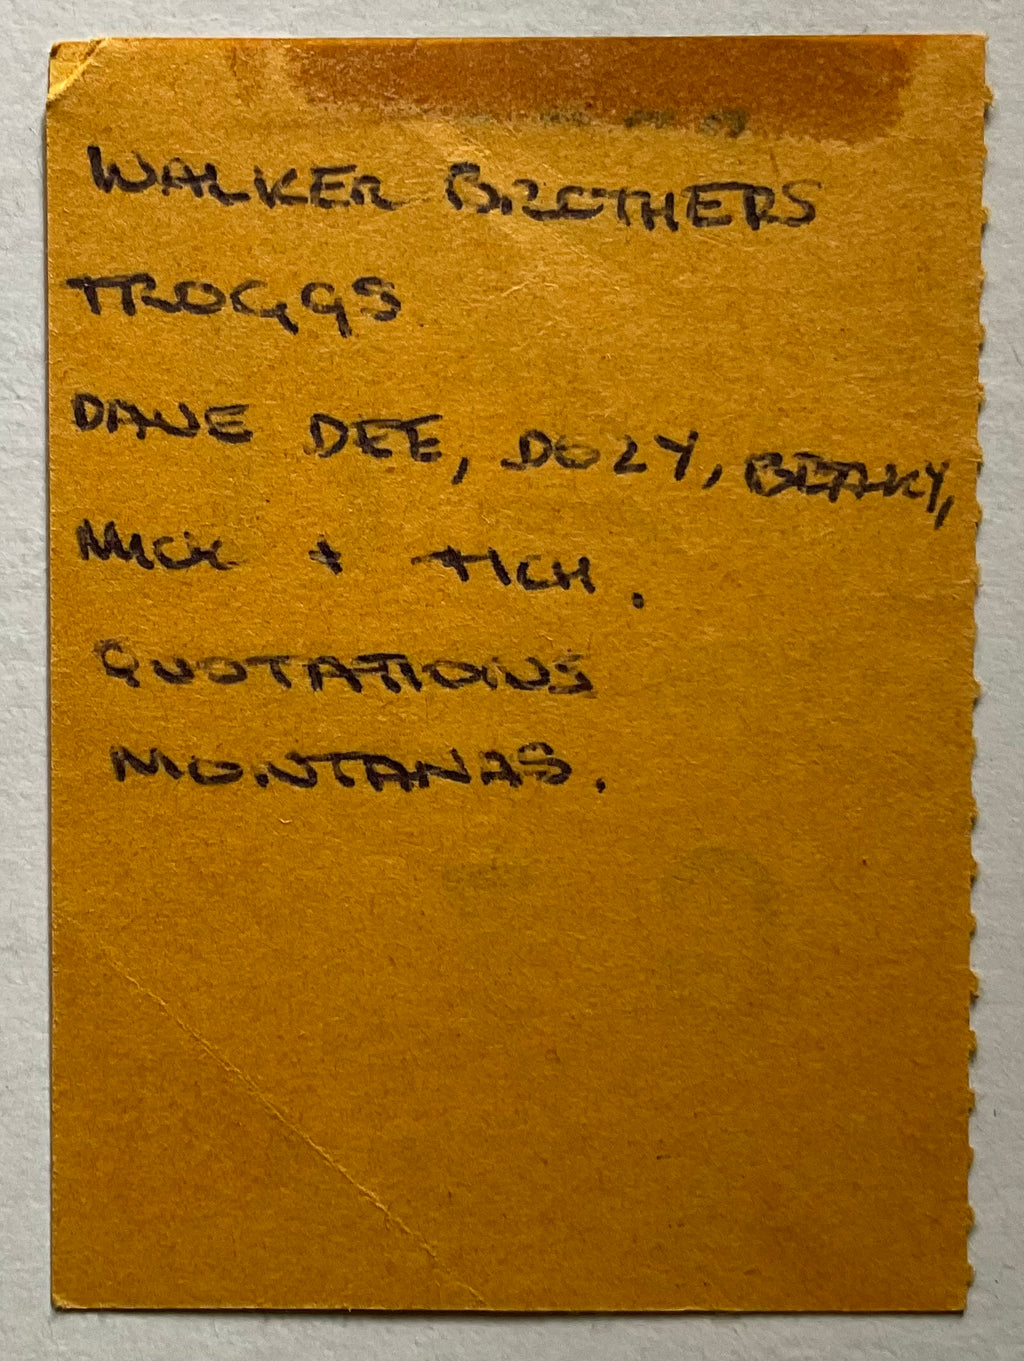 WALKER BROTHERS
TROGGS
DAVE DEE, DOZY, BEAKY,
MICK + TICH.
QUOTATIONS
MONTANAS.